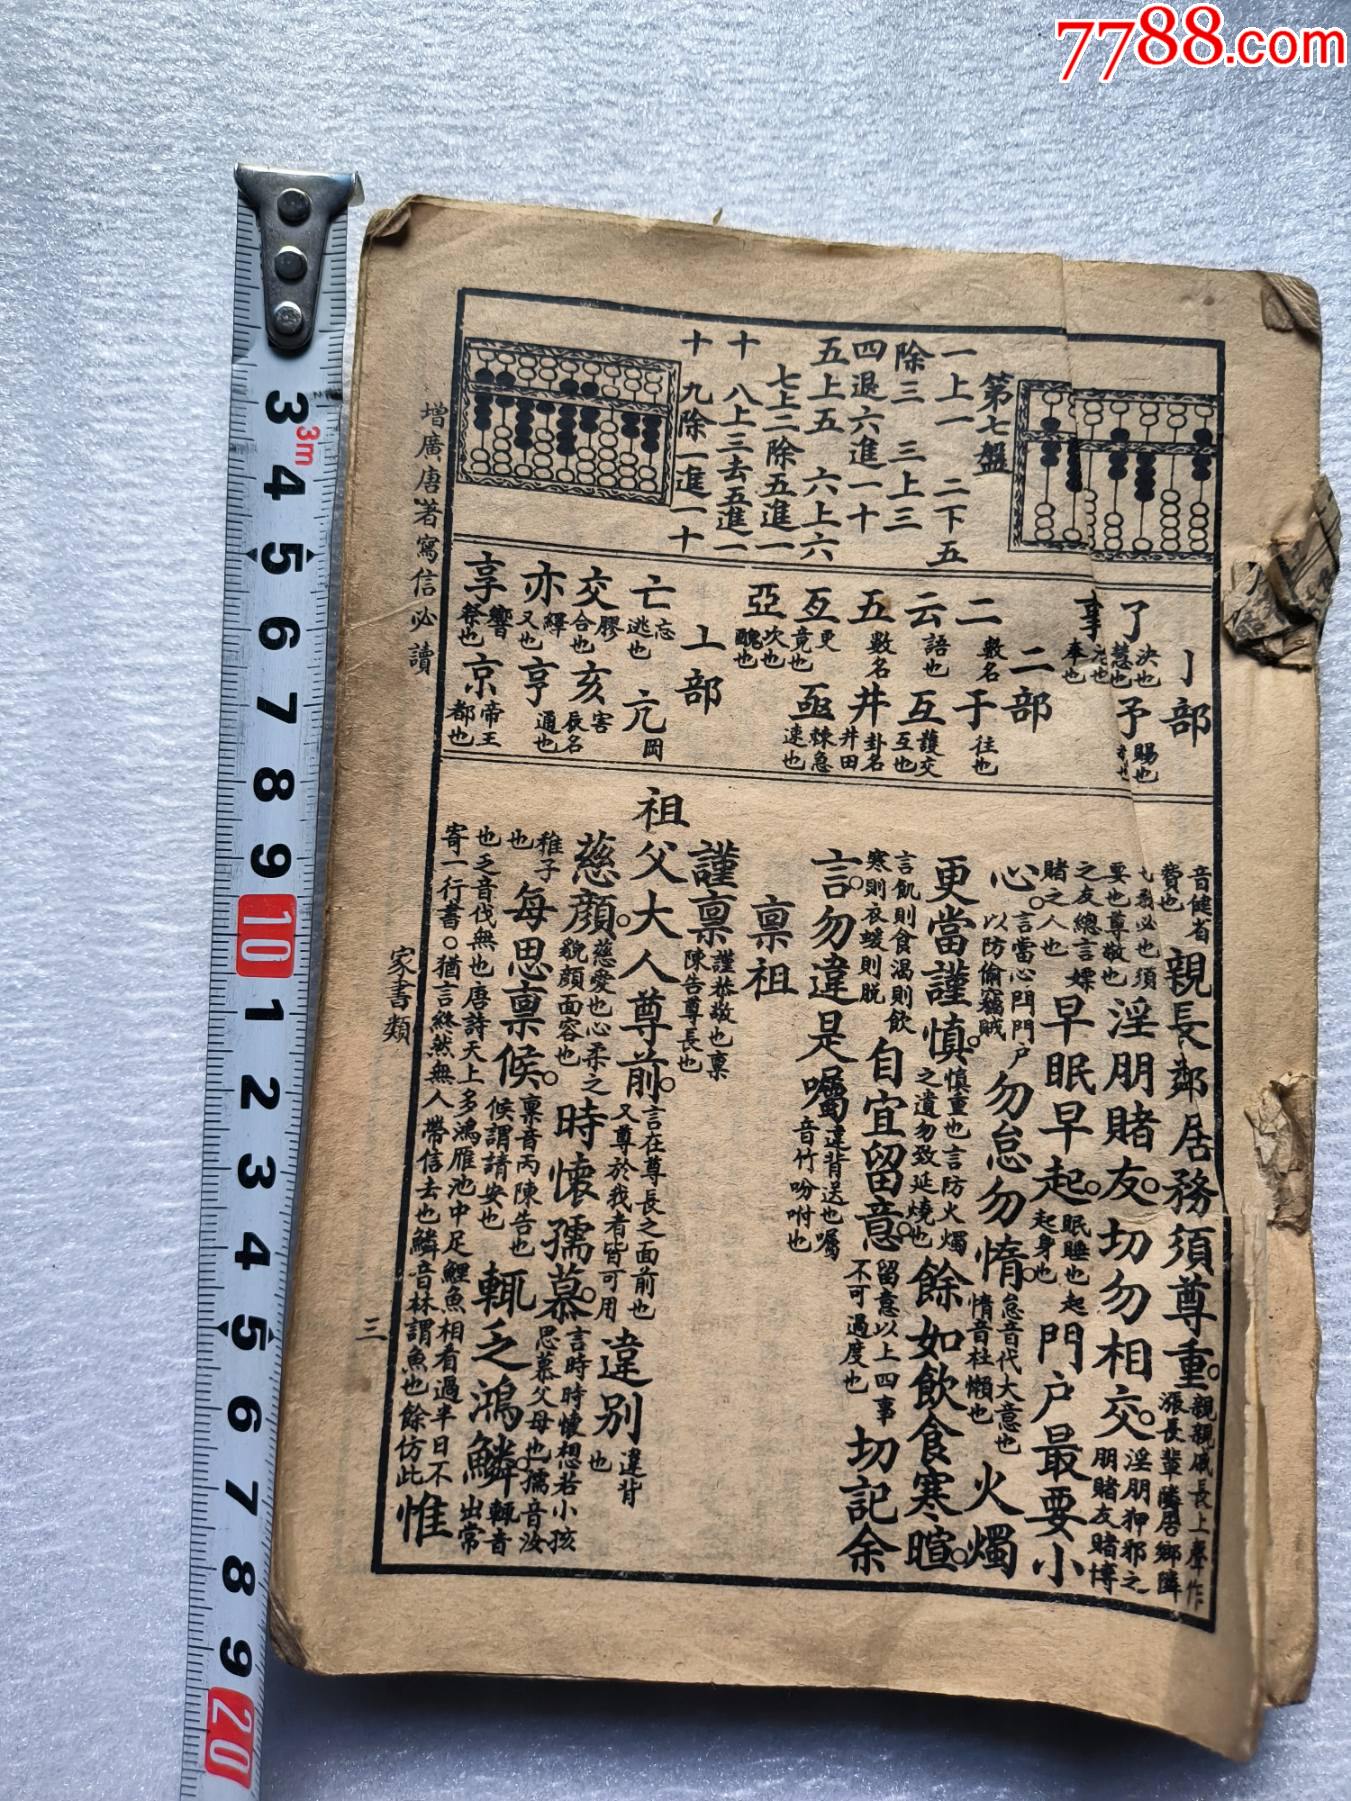 7788.com
第七盤
一上一 二下五
除三 三上三
四退六進一十
五上五 六上六
七上二除五進一
十 八上三去五進一
十 九除一進一十
亅部
了 決也 慧也 予 賜也
事
二部
二 數名 于 往也
云 語也 互 護交 互也
五 數名 井 卦名 井田
亙 更 竟也 亟 棘急 速也
亞 次也 醜也
亠部
亡 忘 逃也 亢 岡
交 膠 合也 亥 害 辰名
亦 繹 又也 亨 通也
享 響 祭也 京 帝王 都也
音健省
費也 親長鄰居務須尊重。親親戚長上聲作
漲長輩隣居鄉隣
也務必也須
要也尊敬也 淫朋賭友。切勿相交。淫朋狎邪之
朋賭友賭博
之友總言嫖
賭之人也 早眠早起。眠睡也起
起身也 門戶最要小
心。言當心門門戶
以防偷竊賊 勿怠勿惰。怠音代大意也
惰音杜懶也 火燭
更當謹慎。慎重也言防火燭
之遺勿致延燒也 餘如飲食寒暄。
言飢則食渴則飲
寒則衣煖則脫 自宜留意。留意以上四事
不可過度也 切記余
言。勿違是囑 違背送也囑
音竹吩咐也
稟祖
謹稟 謹恭敬也稟
陳告尊長也
祖父大人尊前。言在尊長之面前也
又尊於我者皆可用 違別 違背
也
慈顏。慈愛也心柔之
貌顏面容也 時懷孺慕。言時時懷想若小孩
思慕父母也孺音汝
稚子
也 每思稟候。稟音丙陳告也
候謂請安也 輒乏鴻鱗 輒音
出常
也乏音伐無也唐詩天上多鴻雁池中足鯉魚相看過半日不
寄一行書。猶言終然無人帶信去也鱗音林謂魚也餘仿此 惟
增廣唐著寫信必讀
家書類
三
3 3m 4 5 6 7 8 9 10 1 2 3 4 5 6 7 8 9 20